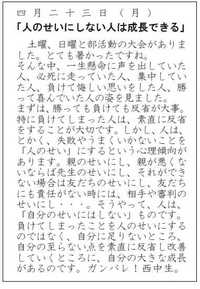 四月二十三日（月）
「人のせいにしない人は成長できる」
　土曜、日曜と部活動の大会がありま
した。とても暑かったですね。
そんな中、一生懸命に声を出していた
人、必死に走っていた人、集中してい
た人、負けて悔しい思いをした人、勝
って喜んでいた人の姿を見ました。
まずは、勝っても負けても反省が大事。
特に負けてしまった人は、素直に反省
をすることが大切です。しかし、人は、
とかく、失敗やうまくいかないことを
「人のせい」にするという心理傾向が
あります。親のせいにし、親が悪くな
いならば先生のせいにし、それができ
ない場合は友だちのせいにし、友だち
にも責任がない時には、相手や審判の
せいにし・・・。そうやって、人は、
「自分のせいにはしない」ものです。
負けてしまったことを人のせいにする
のではなく、自分に足りないところ、
自分の至らない点を素直に反省し改善
していくところに、自分の大きな成長
があるのです。ガンバレ！西中生。